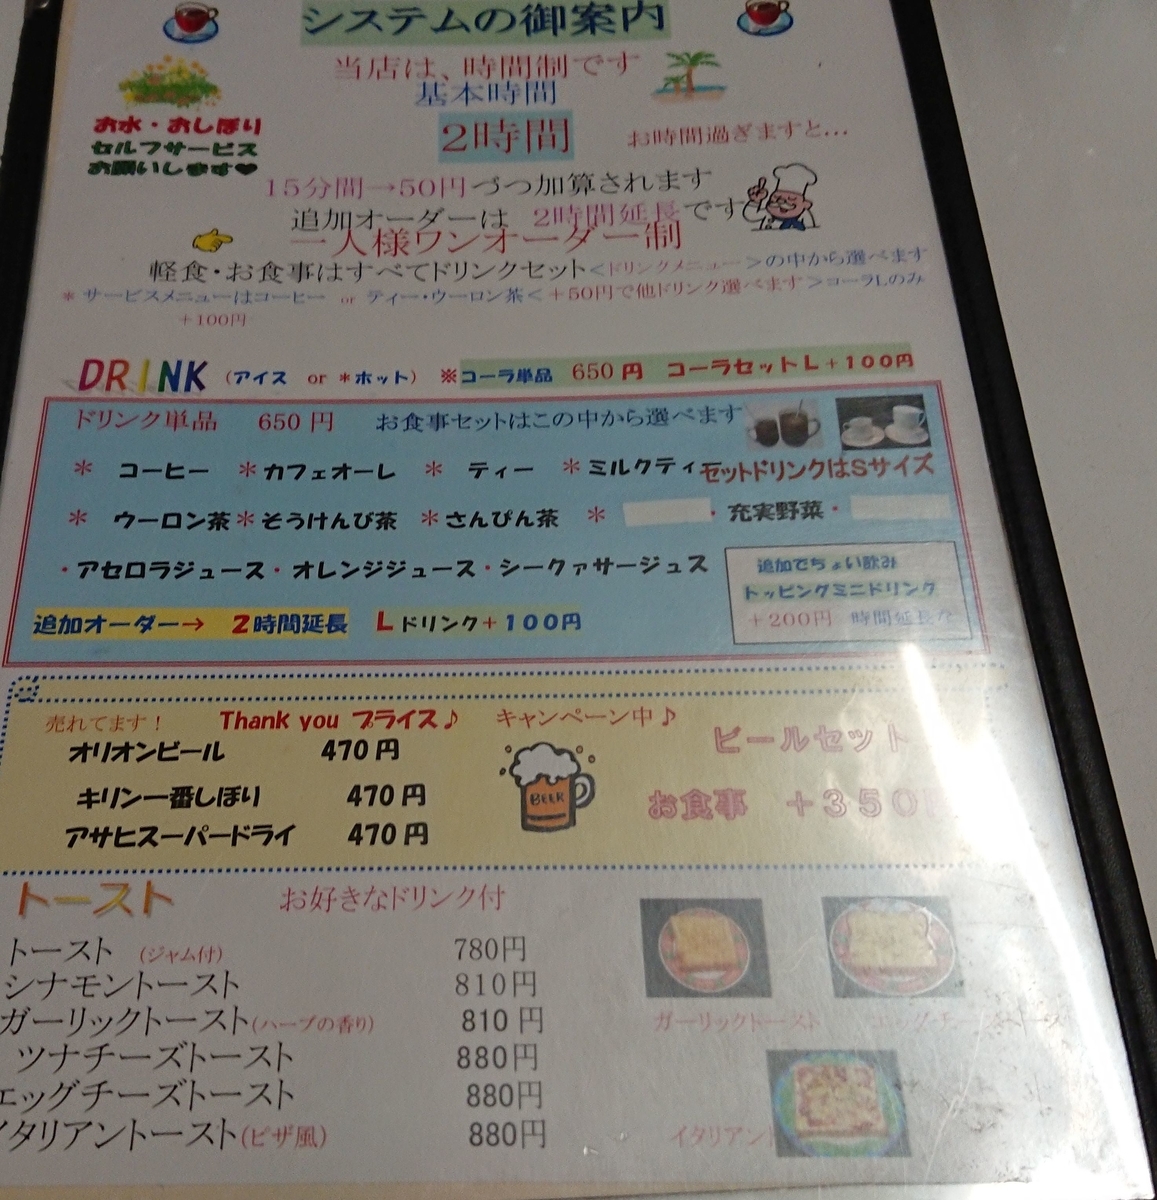 システムの御案内
当店は、時間制です
基本時間
2時間
お時間過ぎますと…
お水・おしぼり
セルフサービス
お願いします♥
15分間→50円づつ加算されます
追加オーダーは 2時間延長です
一人様ワンオーダー制
軽食・お食事はすべてドリンクセット<ドリンクメニュー>の中から選べます
* サービスメニューはコーヒー or ティー・ウーロン茶<+50円で他ドリンク選べます>コーラLのみ
+100円
DRINK (アイス or *ホット) ※コーラ単品 650円 コーラセットL+100円
ドリンク単品 650円 お食事セットはこの中から選べます
* コーヒー *カフェオーレ * ティー *ミルクティー セットドリンクはSサイズ
* ウーロン茶 *そうけんび茶 *さんぴん茶 * ・充実野菜・
・アセロラジュース・オレンジジュース・シークァサージュス
追加でちょい飲み
トッピングミニドリンク
+200円 時間延長
追加オーダー→ 2時間延長 Lドリンク+100円
売れてます! Thank you プライス♪ キャンペーン中♪
オリオンビール 470円
キリン一番しぼり 470円
アサヒスーパードライ 470円
BEER
ビールセット
お食事 +350円
トースト お好きなドリンク付
トースト (ジャム付) 780円
シナモントースト 810円
ガーリックトースト(ハーブの香り) 810円
ツナチーズトースト 880円
エッグチーズトースト 880円
イタリアントースト(ピザ風) 880円
ガーリックトースト エッグチーズトースト
イタリアン